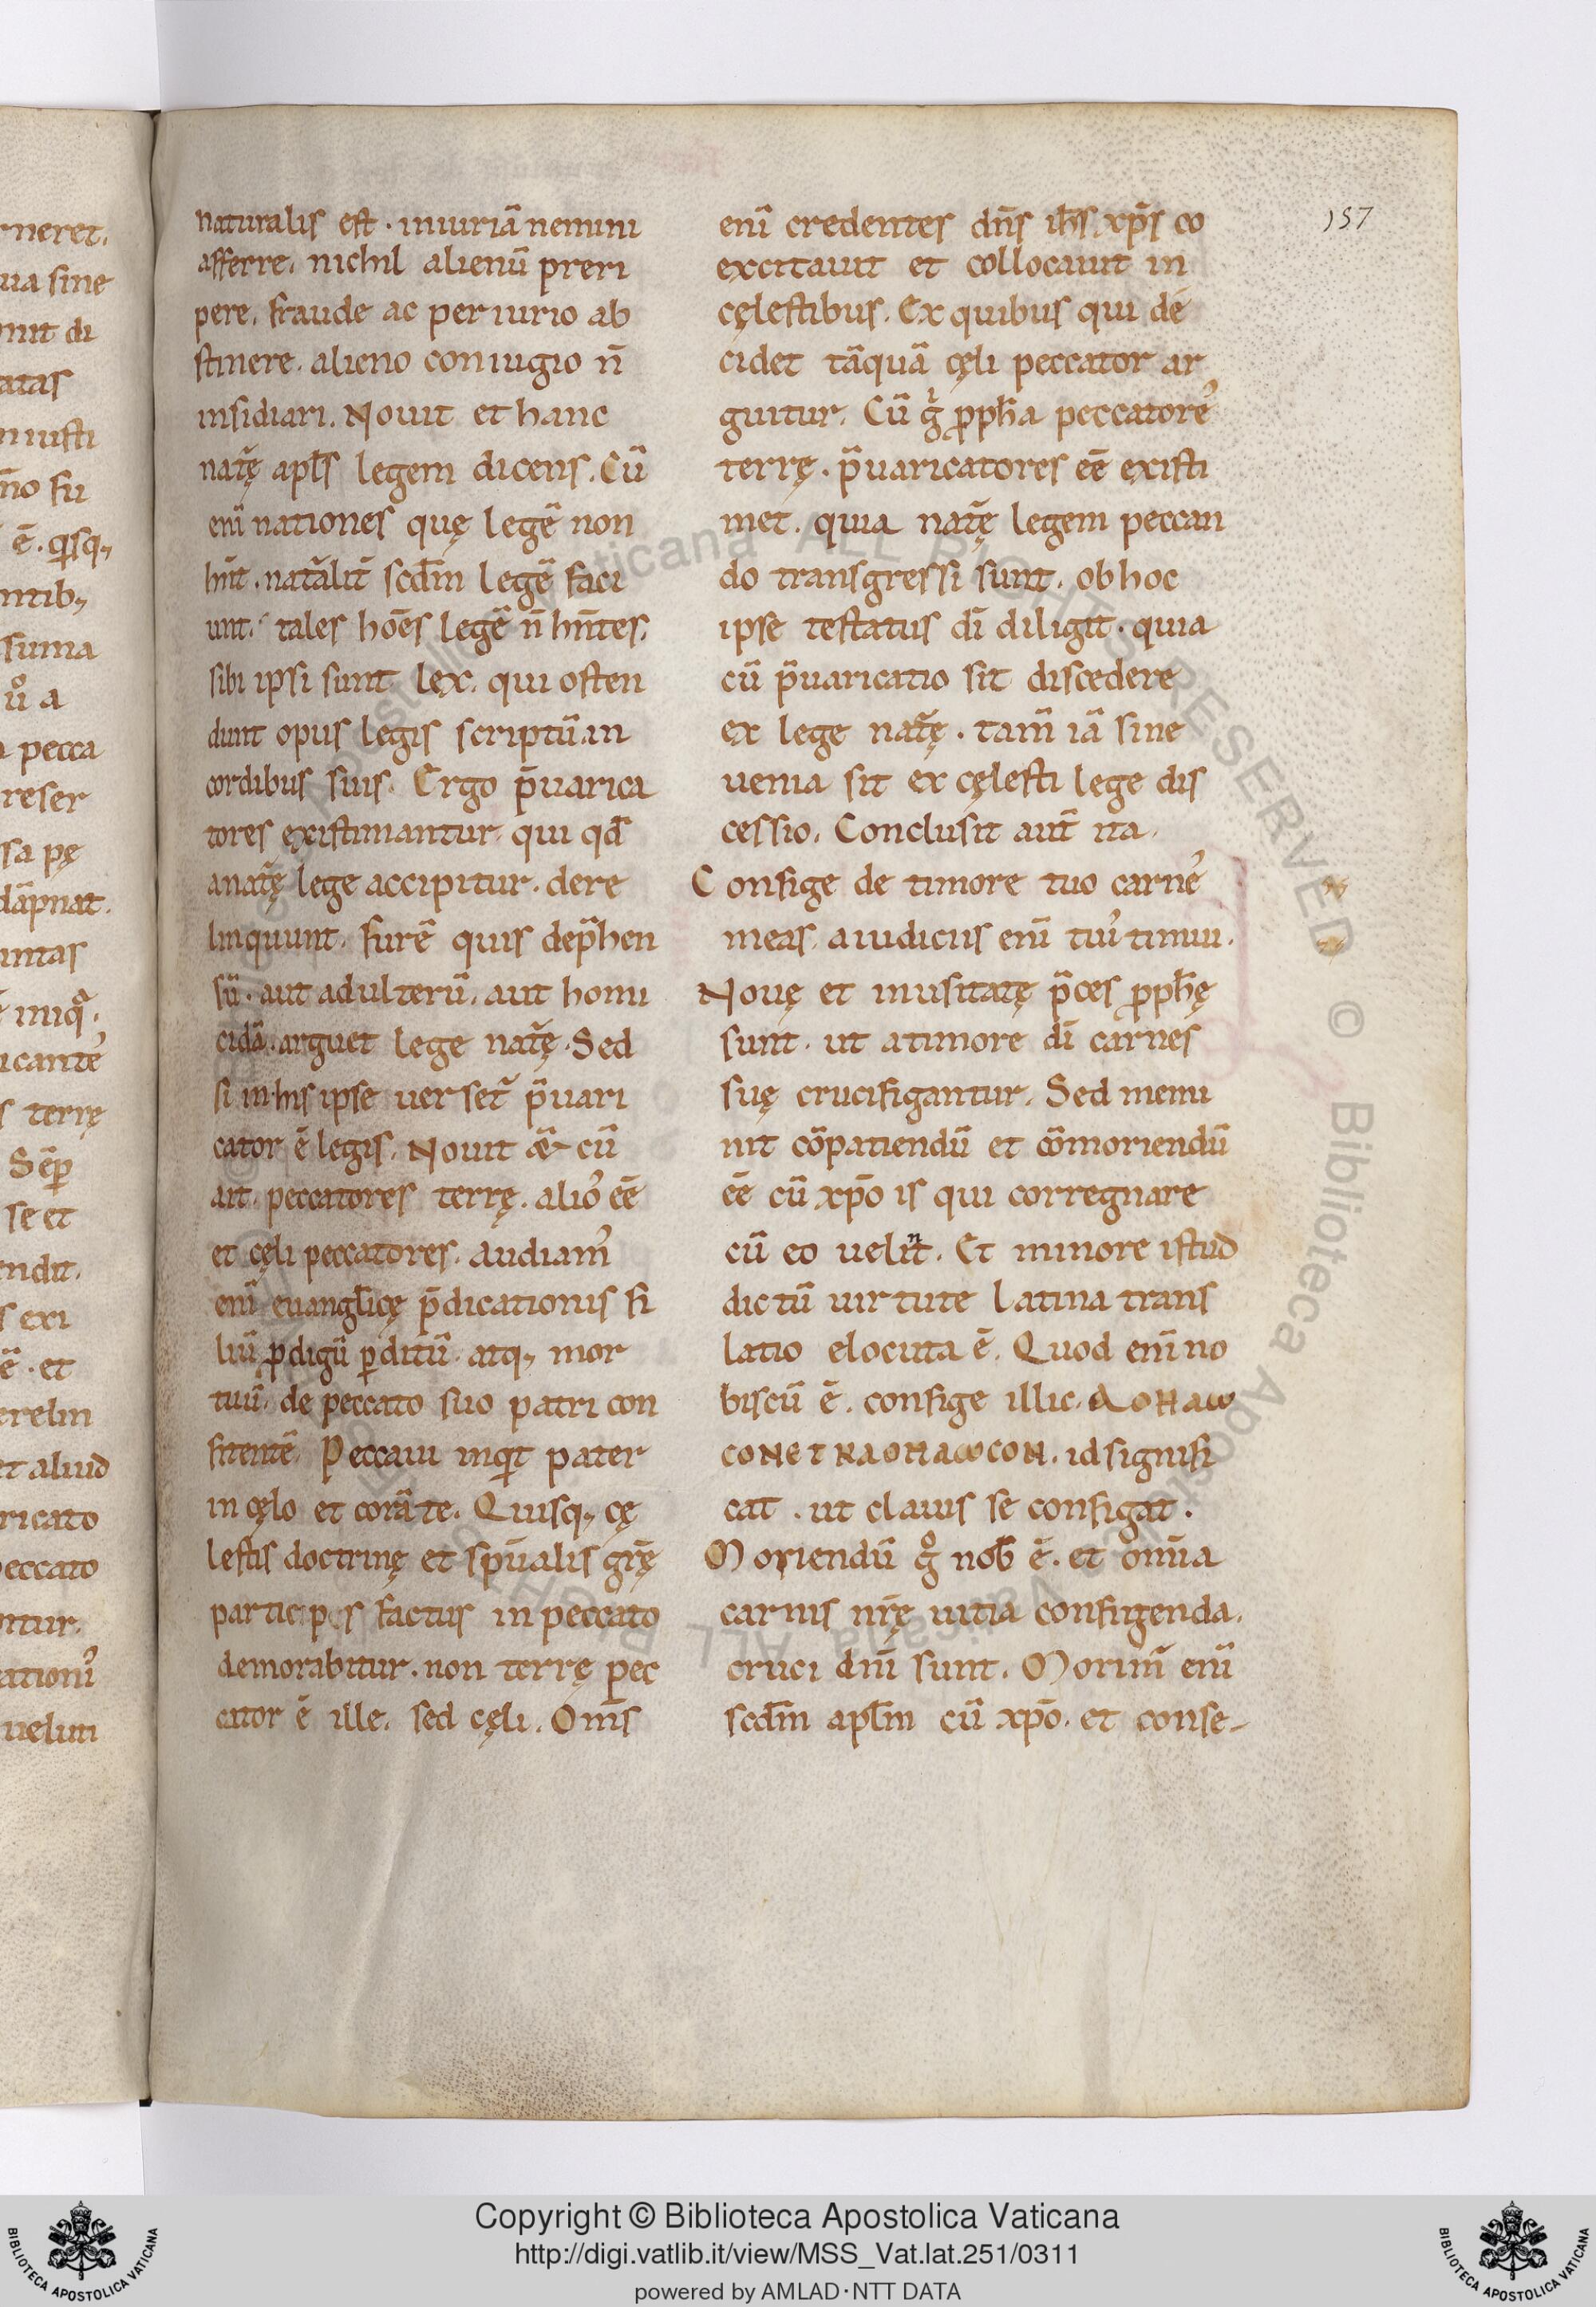 naturalis est · iniuriā nemini
afferre. nichil alienū preri
pere. fraude ac per iurio ab
stinere. alieno coniugio n̄
insidiari. Nouit et hanc
nat̄ę apl̄s legem dicens. Cū
enī nationes quę legē non
hn̄t. nat̄alit̄ scd̄m legē faci
unt. tales hoēs legē n̄ hn̄tes.
sibi ipsi sunt lex. qui osten
dunt opus legis scriptū in
cordibus suis. Ergo p̄uarica
tores existimantur. qui qd̄
anat̄ę lege accipitur. dere
linquunt. furē quis dep̄hen
sū. aut adulterū. aut homi
cidā. arguet lege nat̄ę. Sed
si in his ipse uerset̄ p̄uari
cator ē legis. Nouit &̄ cū
ait. peccatores terrę. alio᾽ eē
et cęli peccatores. audiam᾽
enī euangl̄icę p̄dicationis fi
liū ꝓdigū ꝑditū. atq; mor
tuū. de peccato suo patri con
fitentē. Peccaui inqͥt pater
in cęlo et corā te. Quisq; cę
lestis doctrinę et sp̄ualis gr̄ę
particeps factus in peccato
demorabitur. non terrę pec
cator ē ille. sed cęli. Om̄s
enī credentes dn̄s ih̄s xp̄s co
excitauit et collocauit in
cęlestibus. Ex quibus qui de
cidet tāquā cęli peccator ar
guitur. Cū g̊ ꝓph̄a peccatore᾽
terrę. p̄uaricatores eē existi
met. quia nat̄ę legem peccan
do transgressi sunt. ob hoc
ipse testatus dī diligit. quia
cū p̄uaricatio sit discedere
ex lege nat̄ę. tam̄ iā sine
uenia sit ex cęlesti lege dis
cessio. Conclusit aut̄ ita.
Confige de timore tuo carne᾽
meas. aiudiciis enī tui᾽ timui.
Nouę et inusitatę p̄ces ꝓph̄ę
sunt. ut atimore dī carnes
suę crucifigantur. Sed memi
nit cōpatiendū et cōmoriendū
eē cū xp̄o is qui corregnare
cū eo uelint. Et minore istud
dictū uirtute latina trans
latio elocuta ē. Quod enī no
biscū ē. confige illic.
id signifi
cat. ut clauis se configat.
Moriendū g̊ nob̄ ē. et om̄ia
carnis nr̄ę uitia configenda.
cruci dnī sunt. Morim̄ enī
scd̄m apl̄m cū xp̄o. et conse-
157
Copyright © Biblioteca Apostolica Vaticana
http://digi.vatlib.it/view/MSS_Vat.lat.251/0311
powered by AMLAD·NTT DATA